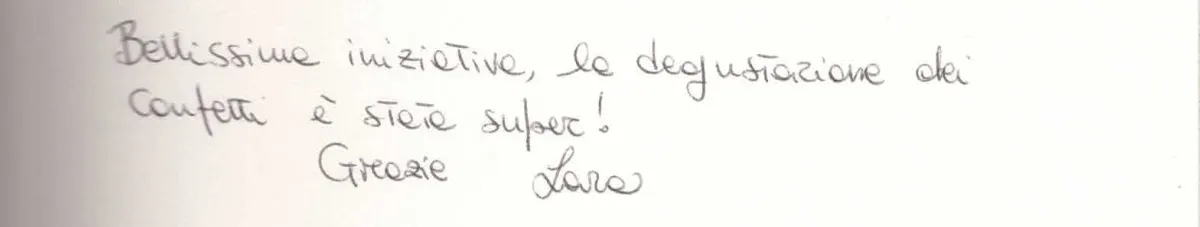 Bellissima iniziativa, la degustazione dei
confetti è stata super!
Grazie Lara